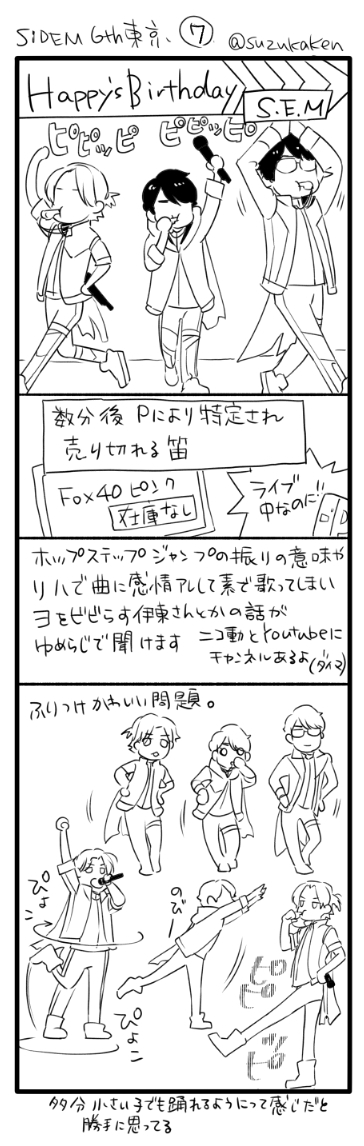 SiDEM 6th東京、⑦
@suzukaken
Happy's Birthday
S.E.M
ピピッピ ピピッピ
数分後 Pにより特定され
売り切れる笛
Fox40 ピンク
在庫なし
ライブ
中なのに
ホップステップジャンプの振りの意味や
リハで曲に感情アレして素で歌ってしまい
ヨをビビらす伊東さんとかの話が
ゆめらじで聞けます ニコ動とYoutubeに
チャンネルあるよ(ダイマ)
ふりつけかわいい問題。
ぴょこ
のびー
ぴょこ
ピピッピ
多分 小さい子でも踊れるようにって感じだと
勝手に思ってる